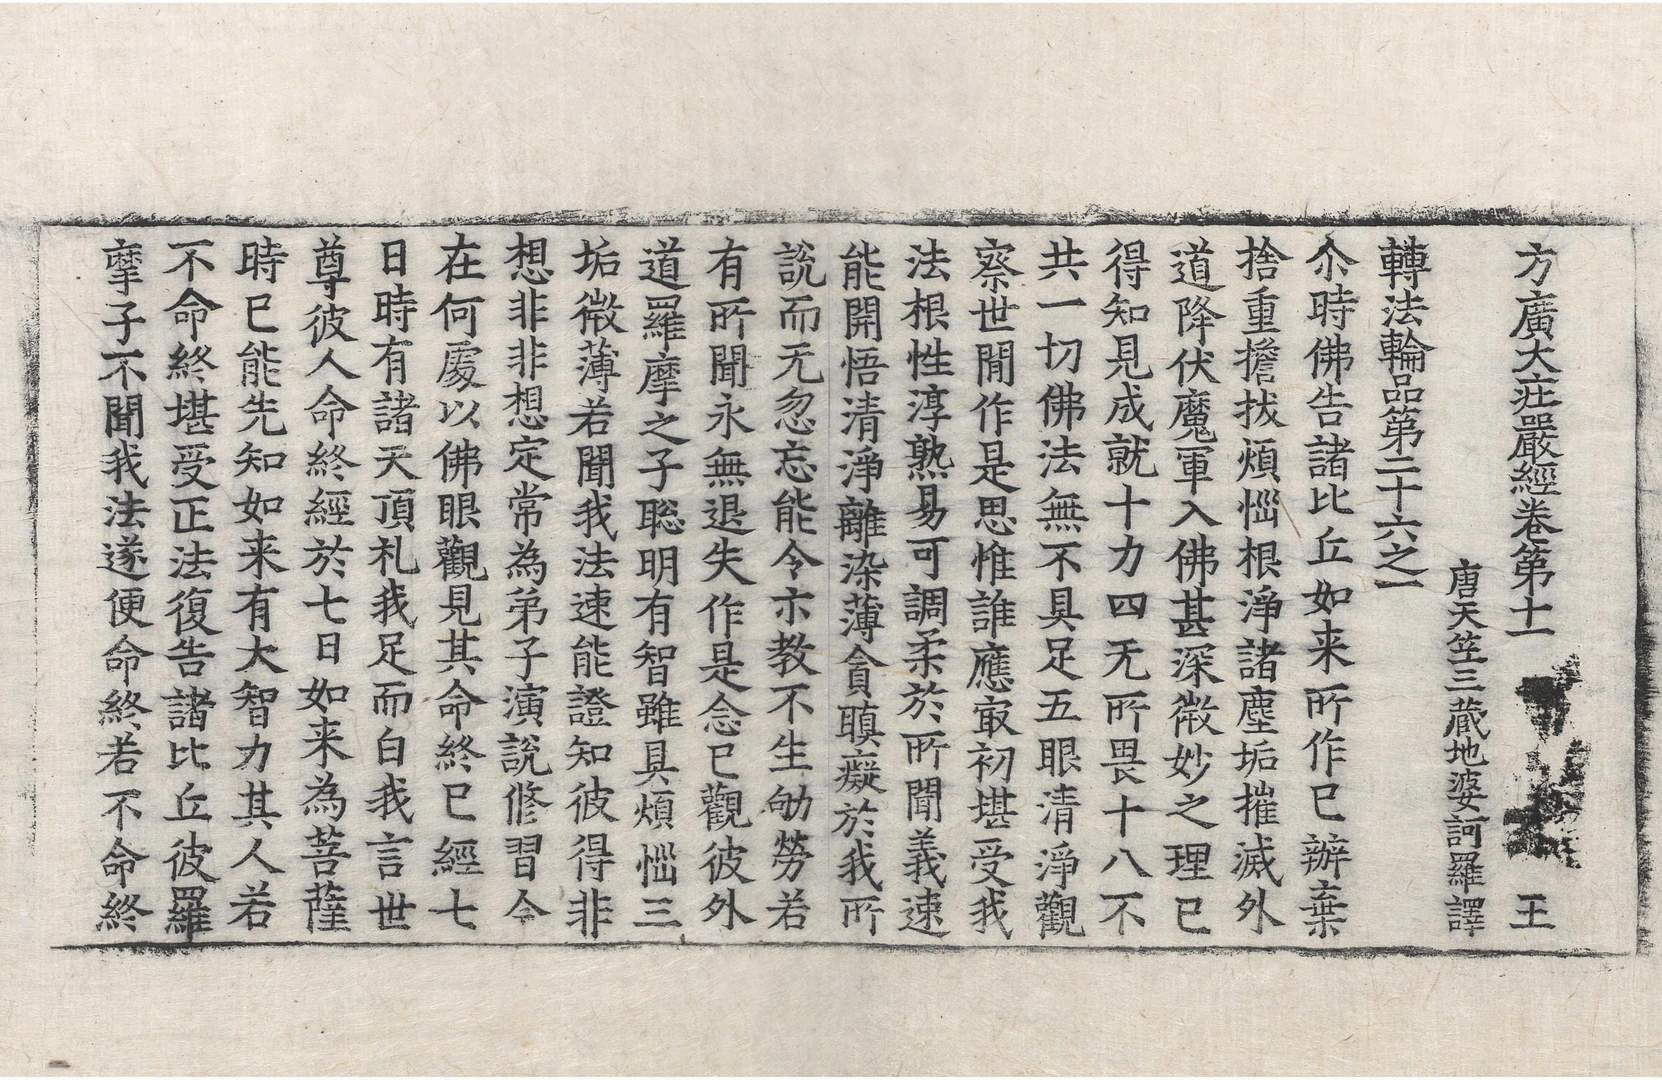 方廣大莊嚴經卷第十一 王
唐天竺三藏地婆訶羅譯
轉法輪品第二十六之一
尒時佛告諸比丘如来所作已辦棄
捨重擔拔煩惱根淨諸塵垢摧滅外
道降伏魔軍入佛甚深微妙之理已
得知見成就十力四无所畏十八不
共一切佛法無不具足五眼清淨觀
察世間作是思惟誰應㝡初堪受我
法根性淳熟易可調柔於所聞義速
能開悟清淨離染薄貪瞋癡於我所
說而无忽忘能令亦教不生劬勞若
有所聞永無退失作是念已觀彼外
道羅摩之子聡明有智雖具煩惱三
垢微薄若聞我法速能證知彼得非
想非非想定常為弟子演說修習今
在何處以佛眼觀見其命終已經七
日時有諸天頂礼我足而白我言世
尊彼人命終經於七日如来為菩薩
時已能先知如来有大智力其人若
不命終堪受正法復告諸比丘彼羅
摩子不聞我法遂便命終若不命終